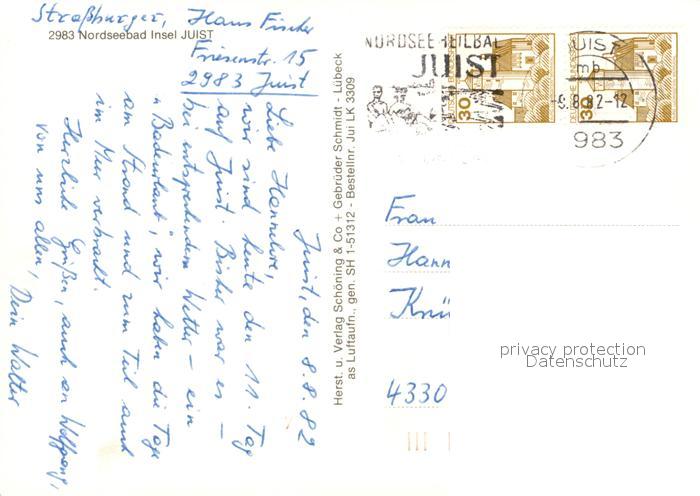 Straßburger, Hans Fischer
2983 Nordseebad Insel JUIST
Friesenstr. 15
2983 Juist
Juist, den 8.8.82
Liebe Hannelore,
wir sind heute den 11. Tag
auf Juist. Bisher war es –
bei entsprechendem Wetter – ein
"Badeurlaub", wir haben die Tage
am Strand und zum Teil auch
im Meer verbracht.
Herzliche Grüßen, auch an Wolfgang,
von uns allen,
Dein Walter
Herst. u. Verlag Schöning & Co + Gebrüder Schmidt - Lübeck
as Luftaufn., gen. SH 1-51312 - Bestellnr. Jui LK 3309
NORDSEE-HEILBAD
JUIST
30
30
JUIST
-9.8.82-12
983
Frau
Hann
Knü
4330
privacy protection
Datenschutz